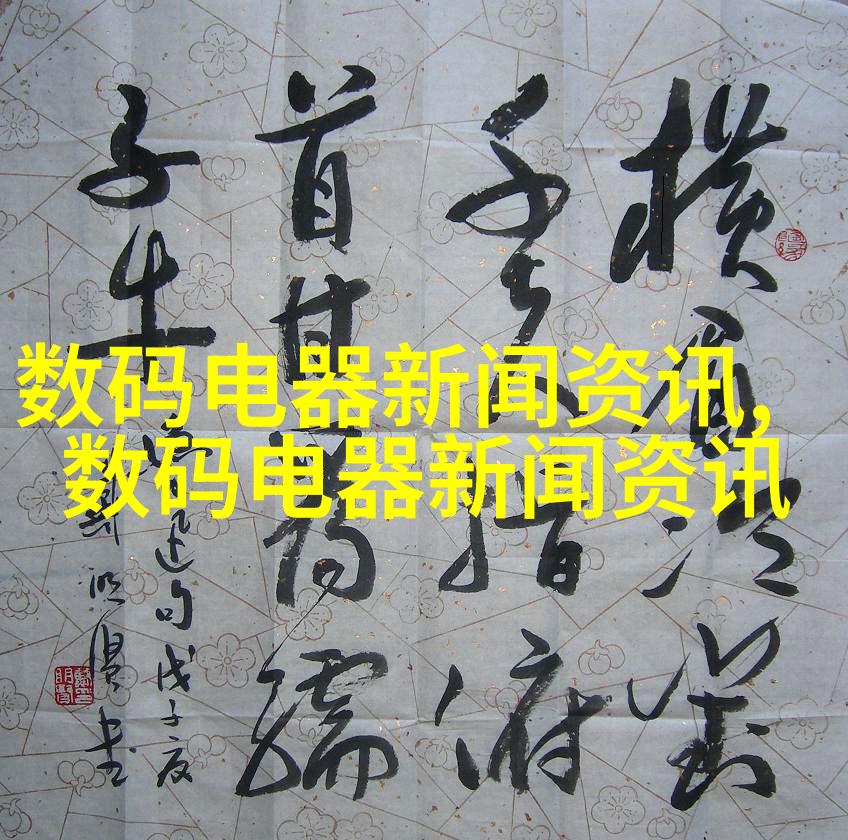 横眉冷對
千夫指俯
首甘為孺
子牛
迅句戊子夏
数码电器新闻资讯,
数码电器新闻资讯